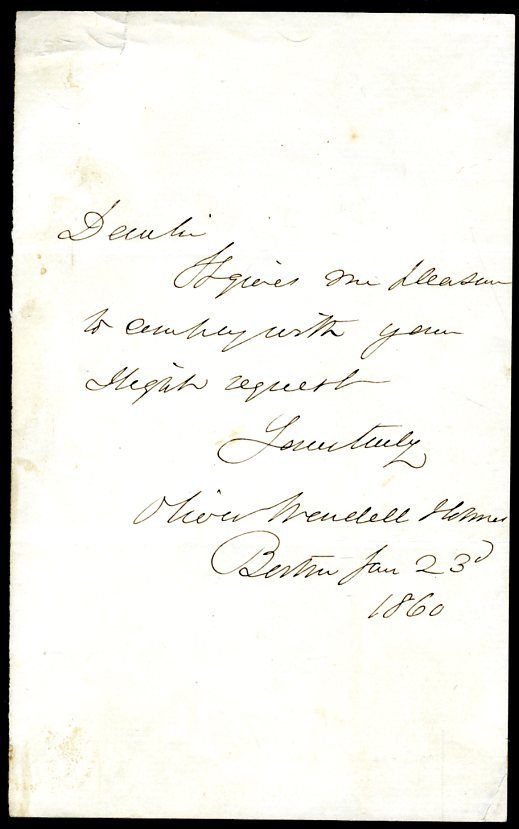 Dear Sir
It gives me pleasure
to comply with your
slight request
Yours truly
Oliver Wendell Holmes
Boston Jan 23d
1860